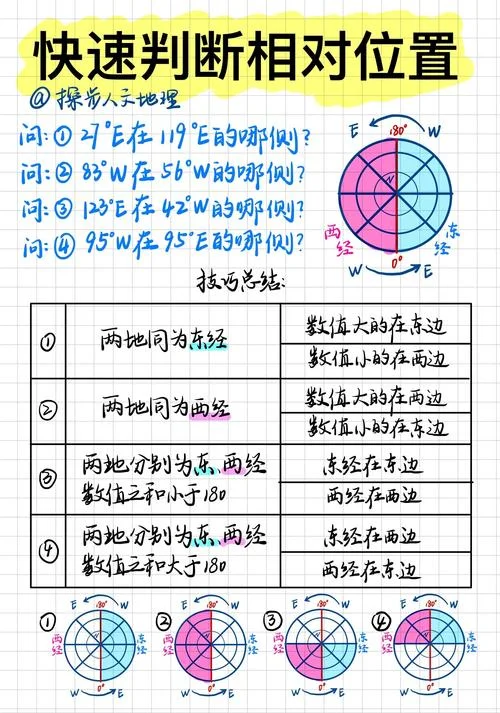 快速判断相对位置
@探步人文地理
问:① 27°E在119°E的哪侧?
问:② 83°W在56°W的哪侧?
问:③ 123°E在42°W的哪侧?
问:④ 95°W在95°E的哪侧?
E
W
180°
N
西经
东经
0°
W
E
技巧总结:
①
两地同为东经
数值大的在东边
数值小的在西边
②
两地同为西经
数值大的在西边
数值小的在东边
③
两地分别为东、西经
数值之和小于180
东经在东边
西经在西边
④
两地分别为东、西经
数值之和大于180
东经在西边
西经在东边
①
E
180°
W
N
西经
东经
0°
W
E
②
E
180°
W
N
西经
东经
0°
W
E
③
E
180°
W
N
西经
东经
0°
W
E
④
E
180°
W
N
西经
东经
0°
W
E